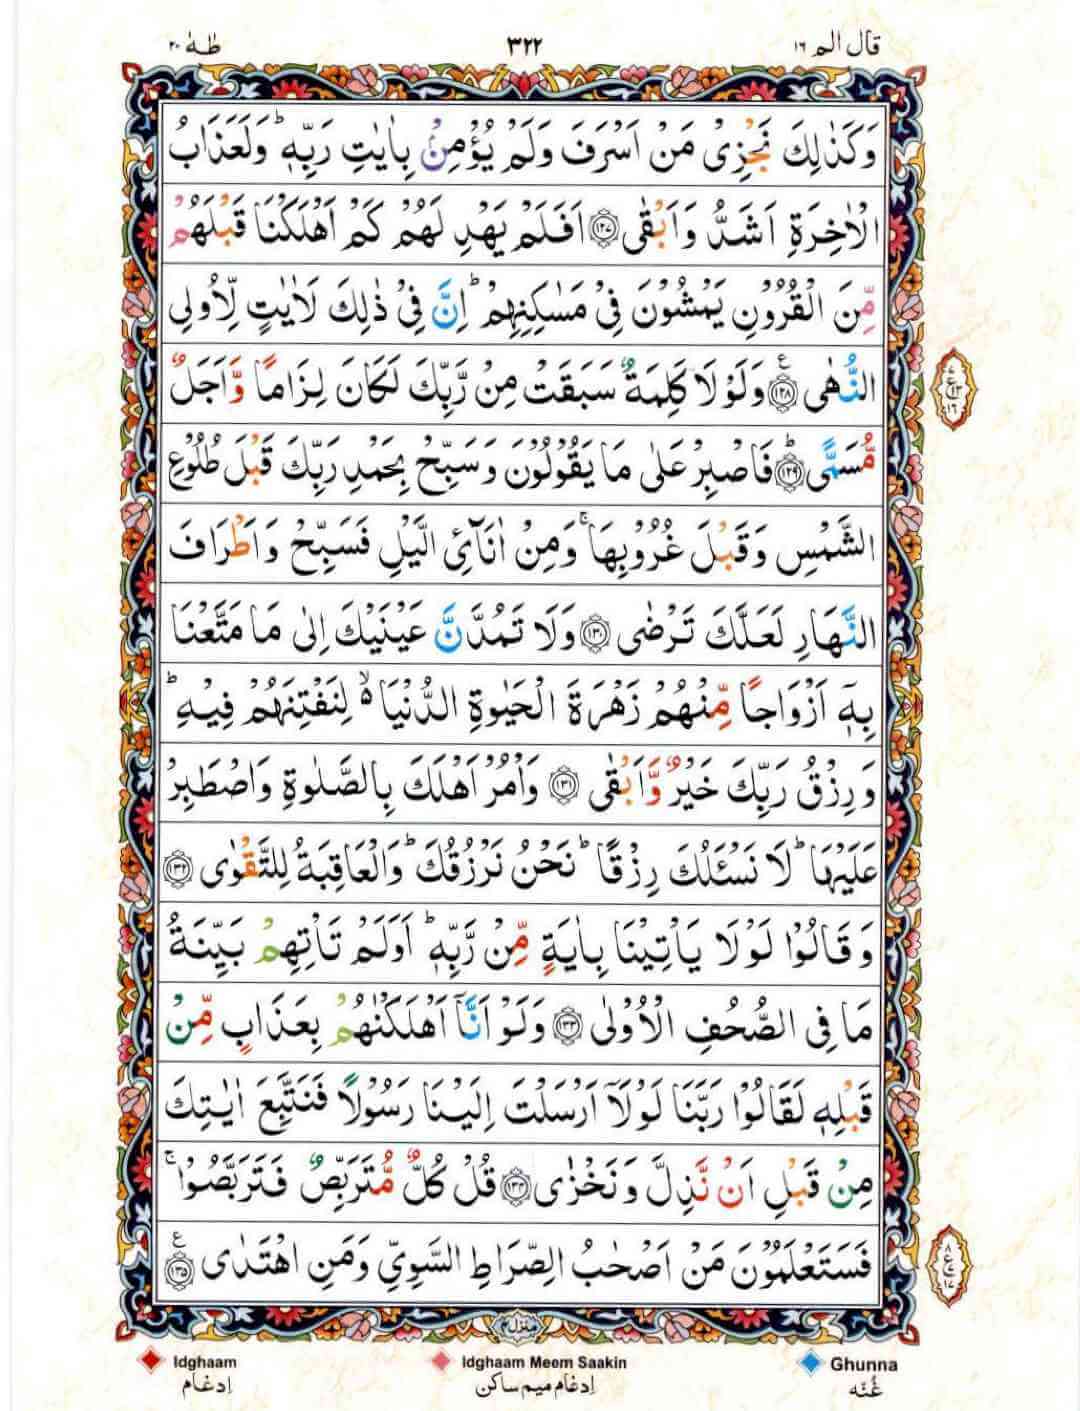 قال الم ١٦
٣٢٢
طٰهٰ ٢٠
وَكَذٰلِكَ نَجْزِىْ مَنْ اَسْرَفَ وَلَمْ يُؤْمِنْۢ بِاٰيٰتِ رَبِّهٖ ؕ وَلَعَذَابُ
الْاٰخِرَةِ اَشَدُّ وَاَبْقٰى ﴿١٢٧﴾ اَفَلَمْ يَهْدِ لَهُمْ كَمْ اَهْلَكْنَا قَبْلَهُمْ
مِّنَ الْقُرُوْنِ يَمْشُوْنَ فِىْ مَسٰكِنِهِمْ ؕ اِنَّ فِىْ ذٰلِكَ لَاٰيٰتٍ لِّاُولِى
النُّهٰى ﴿١٢٨﴾ ع وَلَوْلَا كَلِمَةٌ سَبَقَتْ مِنْ رَّبِّكَ لَكَانَ لِزَامًا وَّاَجَلٌ
مُّسَمًّى ﴿١٢٩﴾ ؕ فَاصْبِرْ عَلٰى مَا يَقُوْلُوْنَ وَسَبِّحْ بِحَمْدِ رَبِّكَ قَبْلَ طُلُوْعِ
الشَّمْسِ وَقَبْلَ غُرُوْبِهَا ۚ وَمِنْ اٰنَآئِ الَّيْلِ فَسَبِّحْ وَاَطْرَافَ
النَّهَارِ لَعَلَّكَ تَرْضٰى ﴿١٣٠﴾ وَلَا تَمُدَّنَّ عَيْنَيْكَ اِلٰى مَا مَتَّعْنَا
بِهٖۤ اَزْوَاجًا مِّنْهُمْ زَهْرَةَ الْحَيٰوةِ الدُّنْيَا ۙ۬ لِنَفْتِنَهُمْ فِيْهِ ؕ
وَرِزْقُ رَبِّكَ خَيْرٌ وَّاَبْقٰى ﴿١٣١﴾ وَاْمُرْ اَهْلَكَ بِالصَّلٰوةِ وَاصْطَبِرْ
عَلَيْهَا ؕ لَا نَسْئَلُكَ رِزْقًا ؕ نَحْنُ نَرْزُقُكَ ؕ وَالْعَاقِبَةُ لِلتَّقْوٰى ﴿١٣٢﴾
وَقَالُوْا لَوْلَا يَاْتِيْنَا بِاٰيَةٍ مِّنْ رَّبِّهٖ ؕ اَوَلَمْ تَاْتِهِمْ بَيِّنَةُ
مَا فِى الصُّحُفِ الْاُوْلٰى ﴿١٣٣﴾ وَلَوْ اَنَّاۤ اَهْلَكْنٰهُمْ بِعَذَابٍ مِّنْ
قَبْلِهٖ لَقَالُوْا رَبَّنَا لَوْلَاۤ اَرْسَلْتَ اِلَيْنَا رَسُوْلًا فَنَتَّبِعَ اٰيٰتِكَ
مِنْ قَبْلِ اَنْ نَّذِلَّ وَنَخْزٰى ﴿١٣٤﴾ قُلْ كُلٌّ مُّتَرَبِّصٌ فَتَرَبَّصُوْا ۚ
فَسَتَعْلَمُوْنَ مَنْ اَصْحٰبُ الصِّرَاطِ السَّوِىِّ وَمَنِ اهْتَدٰى ﴿١٣٥﴾ ع
منزل ٤
Idghaam
Idghaam Meem Saakin
Ghunna
اِدغام
اِدغام میم ساکن
غُنّہ